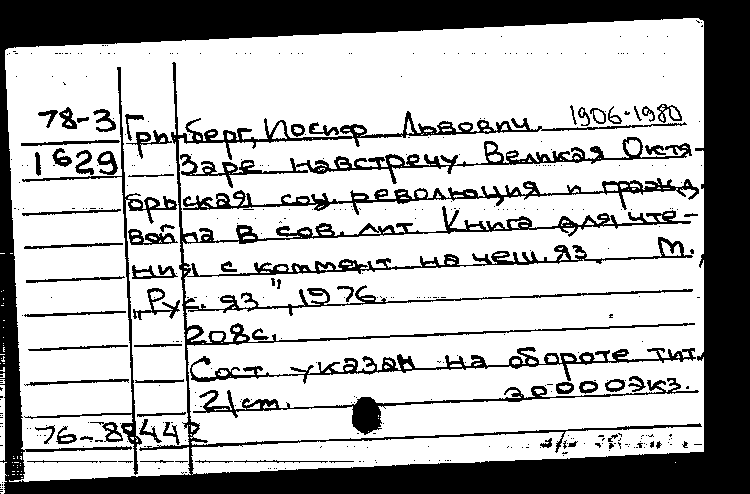 78-3 Гринберг, Иосиф Львович. 1906-1980
1629 Заре навстречу. Великая Октя-
брьская соц. революция и гражд.
война в сов. лит. Книга для чте-
ния с коммент. на чеш. яз. М.,
"Рус. яз", 1976.
208с.
Сост. указан на обороте тит.
21cm. 30000экз.
76-88442